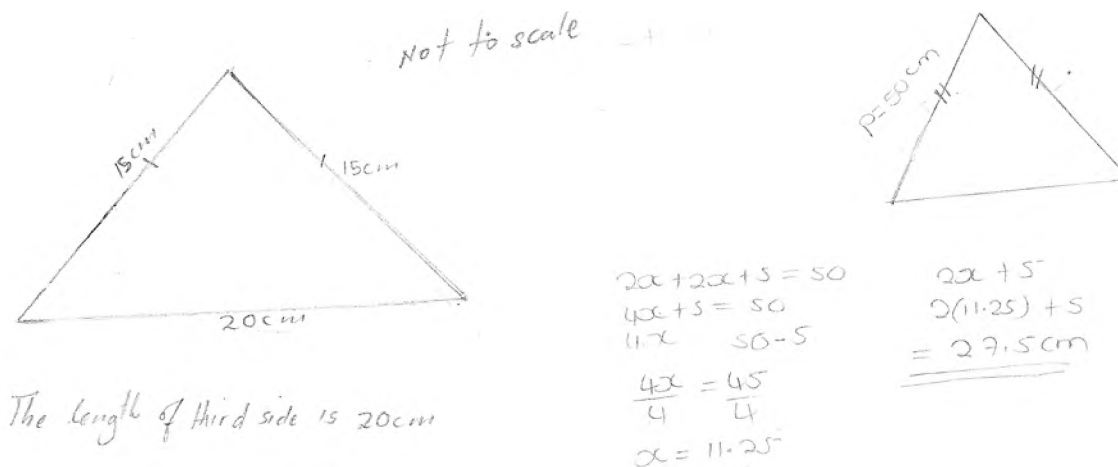 Not to scale
15cm
15cm
20cm
The length of third side is 20cm
P=50cm
2x+2x+5=50
4x+5=50
4x 50-5
4x/4 = 45/4
x = 11.25
2x+5
2(11.25)+5
= 27.5cm